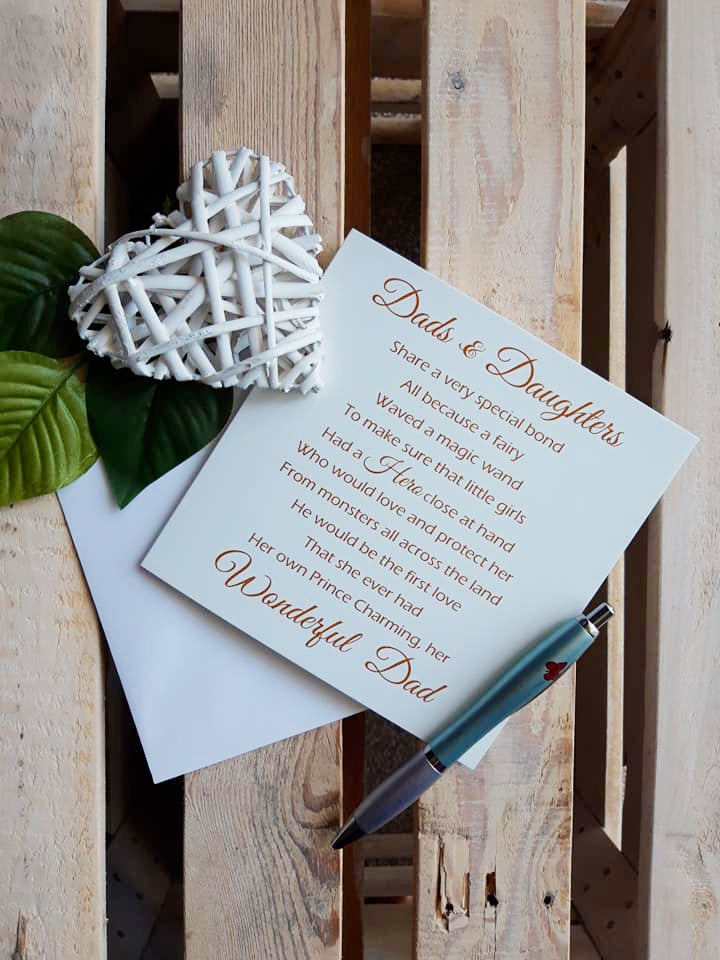 Dads & Daughters
Share a very special bond
All because a fairy
Waved a magic wand
To make sure that little girls
Had a Hero close at hand
Who would love and protect her
From monsters all across the land
He would be the first love
That she ever had
Her own Prince Charming, her
Wonderful Dad